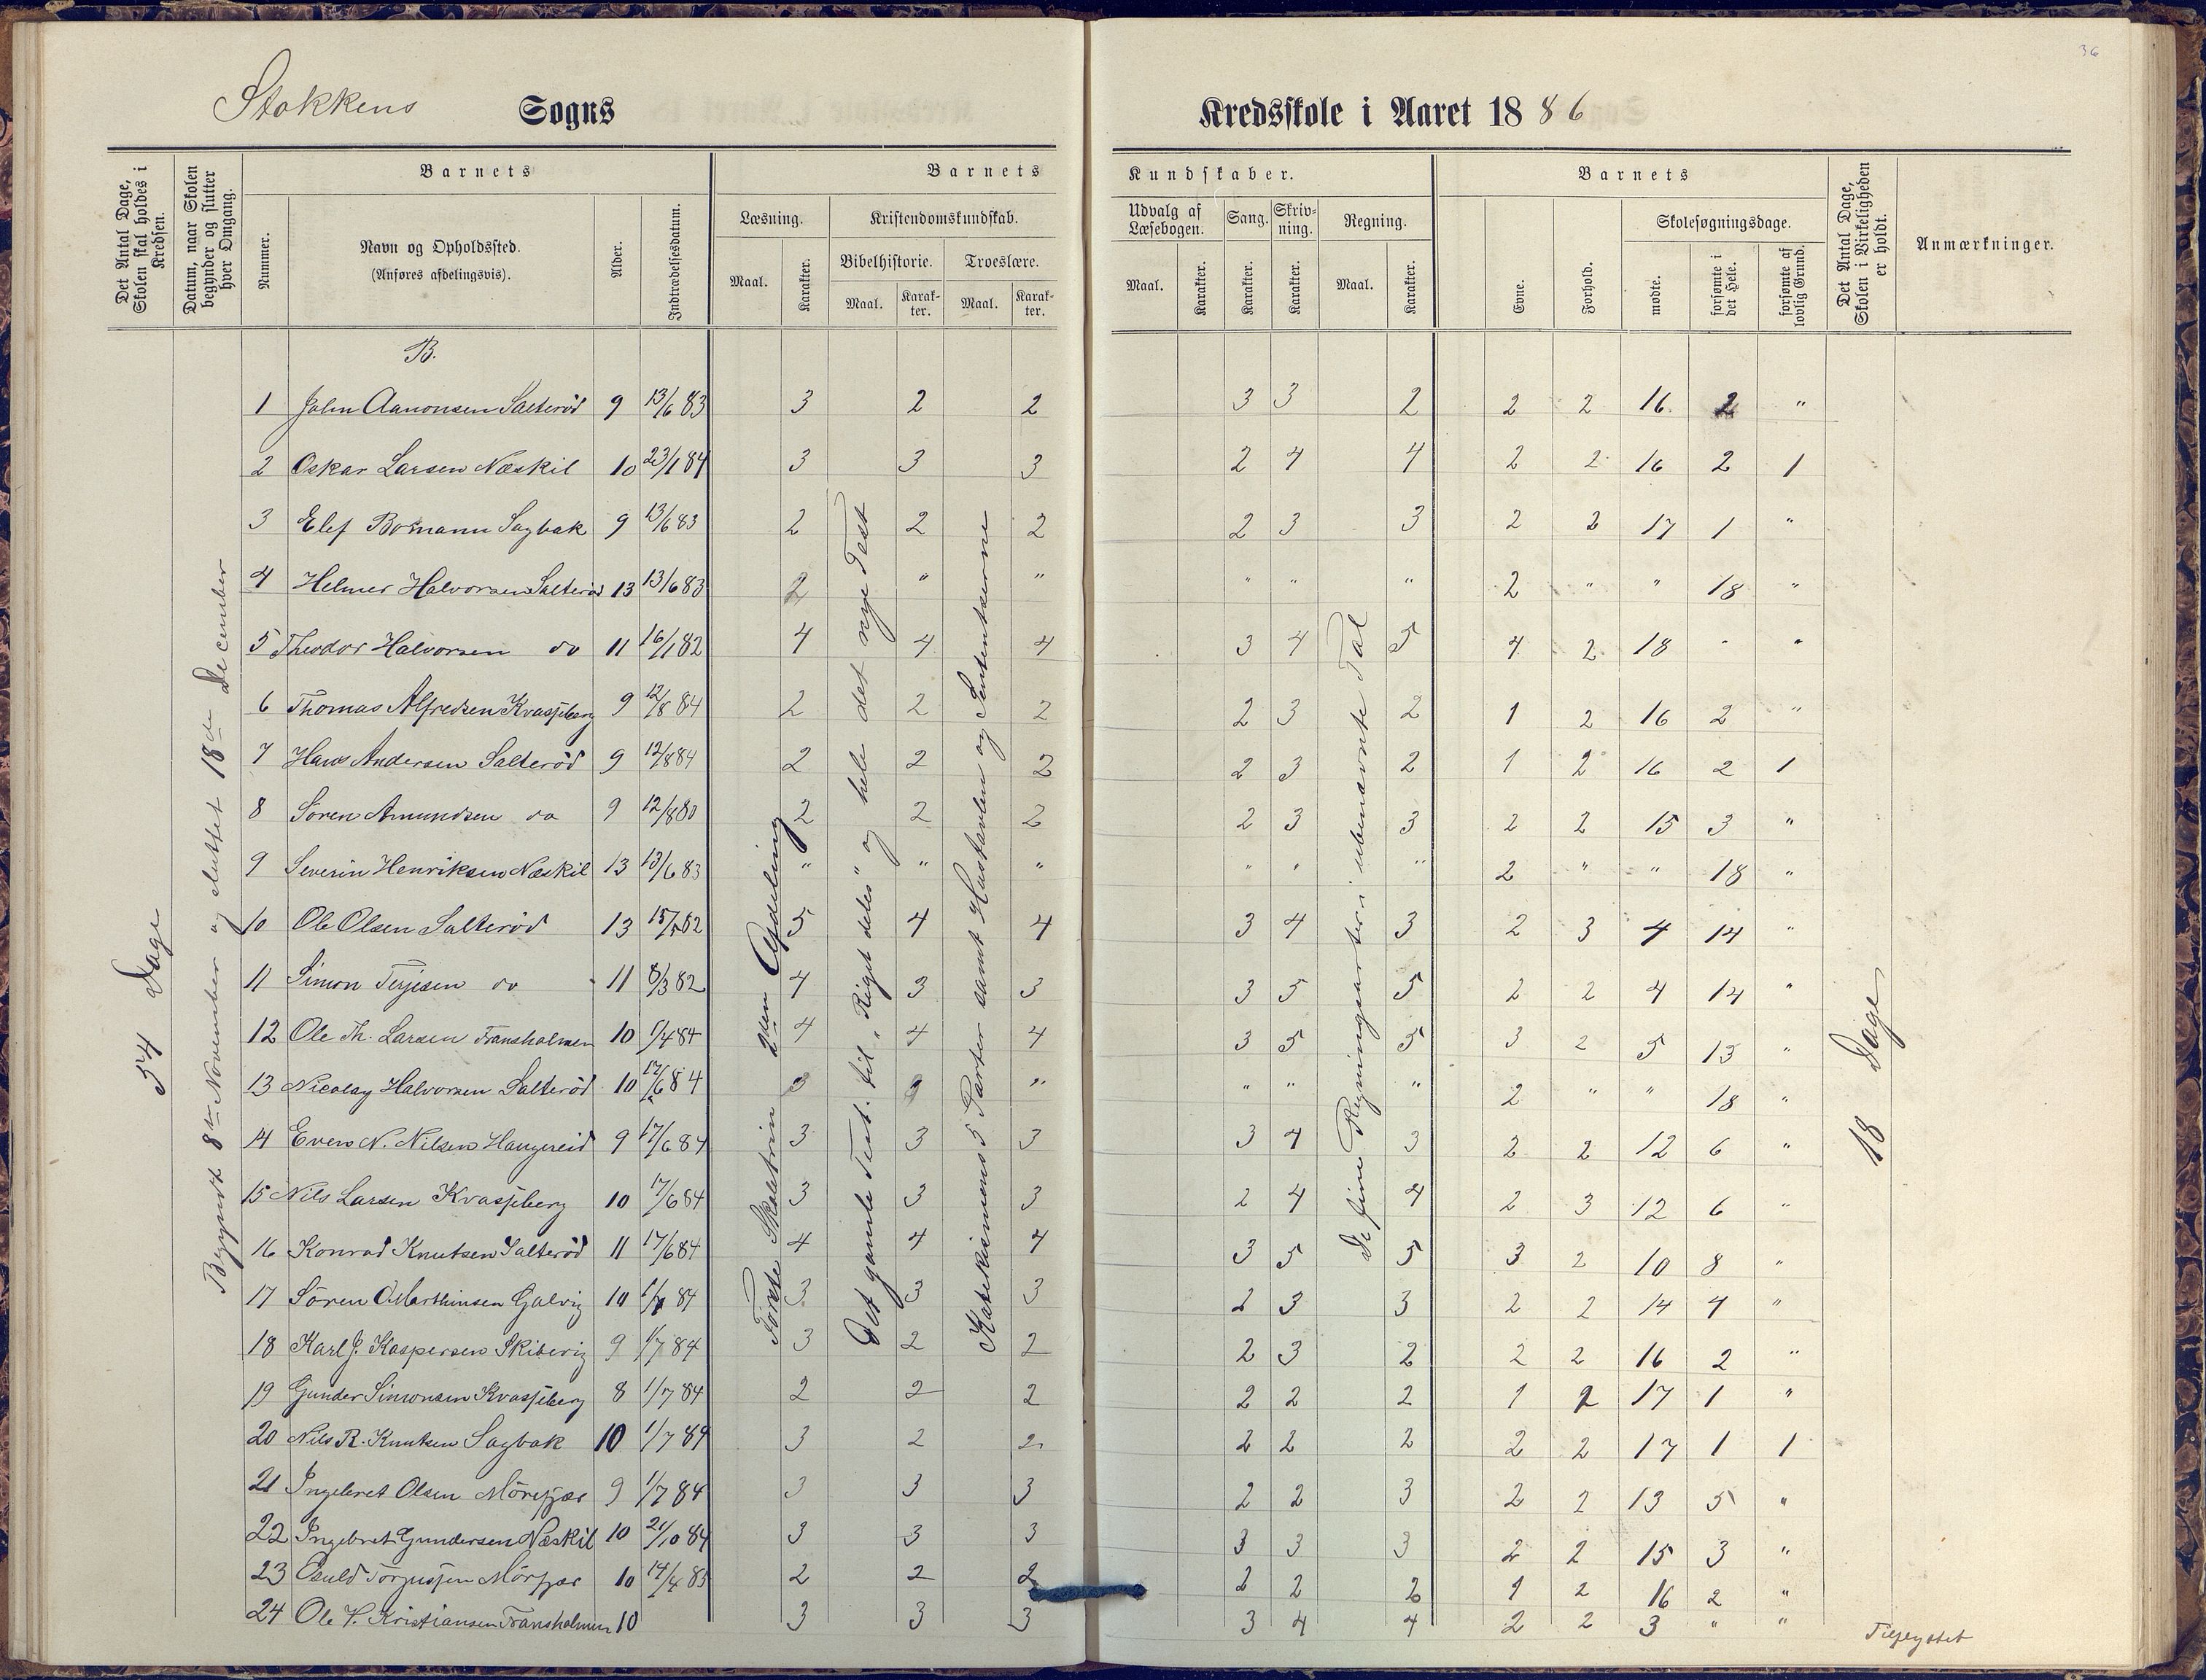 36
Stokkens Sogns Kredsskole i Aaret 1886
Det Antal Dage, Skolen skal holdes i Kredsen.
Datum, naar Skolen begynder og slutter hver Omgang.
Barnets
Nummer.
Navn og Opholdssted.
(Anføres afdelingsvis).
Alder.
Indtrædelsesdatum.
Barnets Kundskaber.
Læsning.
Maal. Karakter.
Kristendomskundskab.
Bibelhistorie. Troeslære.
Maal. Karakter. Maal. Karakter.
Udvalg af Læsebogen.
Maal. Karakter.
Sang. Karakter.
Skrivning. Karakter.
Regning.
Maal. Karakter.
Barnets
Evne. Forhold.
Skolesøgningsdage.
mødte. forsømte i det Hele. forsømte af lovlig Grund.
Det Antal Dage, Skolen i Virkeligheden er holdt.
Anmærkninger.
54 Dage
Begyndt 8de November og sluttet 18de December
Første Skoletrin 2den Afdeling
Det gamle Test. til "Riget deles" og hele det nye Test
Katekismens 5 Parter samt Hustavlen og Sententserne
De fire Regningsarter i ubenævnte Tal
18 Dage
B.
1 John Aanonsen Salterød 9 13/6 83 3 2 2 3 3 2 2 2 16 2 "
2 Oskar Larsen Næskil 10 23/1 84 3 3 3 2 4 4 2 2 16 2 1
3 Elef Bomann Sagbak 9 13/6 83 2 2 2 2 3 3 2 2 17 1 "
4 Helmer Halvorsen Salterød 13 13/6 83 2 " " " " " 2 " " 18 "
5 Theodor Halvorsen do 11 16/1 82 4 4 4 3 4 5 4 2 18 " "
6 Thomas Alfredsen Kvasjeberg 9 12/8 84 2 2 2 2 3 2 1 2 16 2 "
7 Hans Andersen Salterød 9 12/8 84 2 2 2 2 3 2 1 2 16 2 1
8 Søren Amundsen do 9 12/8 80 2 2 2 2 3 3 2 2 15 3 "
9 Severin Henriksen Næskil 13 13/6 83 " " " " " " 2 " " 18 "
10 Ole Olsen Salterød 13 15/5 82 5 4 4 3 4 3 2 3 4 14 "
11 Simon Terjesen do 11 8/3 82 4 3 3 3 5 5 2 2 4 14 "
12 Ole Th. Larsen Fransholmen 10 1/4 84 4 4 4 3 5 5 3 2 5 13 "
13 Nicolay Halvorsen Salterød 10 17/6 84 " " " " 2 " " 18 "
14 Evens N. Nilsen Haugereid 9 17/6 84 3 3 3 3 4 3 2 2 12 6 "
15 Nils Larsen Kvasjeberg 10 17/6 84 3 3 3 2 4 4 2 3 12 6 "
16 Konrad Knutsen Salterød 11 17/6 84 4 4 4 3 5 5 3 2 10 8 "
17 Søren O. Marthinsen Galvig 10 1/7 84 3 3 3 2 3 3 2 2 14 4 "
18 Karl J. Kaspersen Skibvig 9 1/7 84 3 2 2 2 3 2 2 2 16 2 "
19 Gunder Simonsen Kvasjeberg 8 1/7 84 2 2 2 2 2 2 1 2 17 1 "
20 Nils R. Knutsen Sagbak 10 1/7 84 3 2 2 2 2 2 2 2 17 1 1
21 Ingebret Olsen Mørefjær 9 1/7 84 3 3 3 2 2 3 2 2 13 5 "
22 Ingebret Gundersen Næskil 10 21/10 84 3 3 3 3 3 3 2 2 15 3 "
23 Osuld Torjussen Mørfjær 10 14/4 85 2 2 2 2 2 2 1 2 16 2 "
24 Ole H. Kristiansen Fransholmen 10 3 3 3 3 4 4 2 2 3 " " Tilflyttet